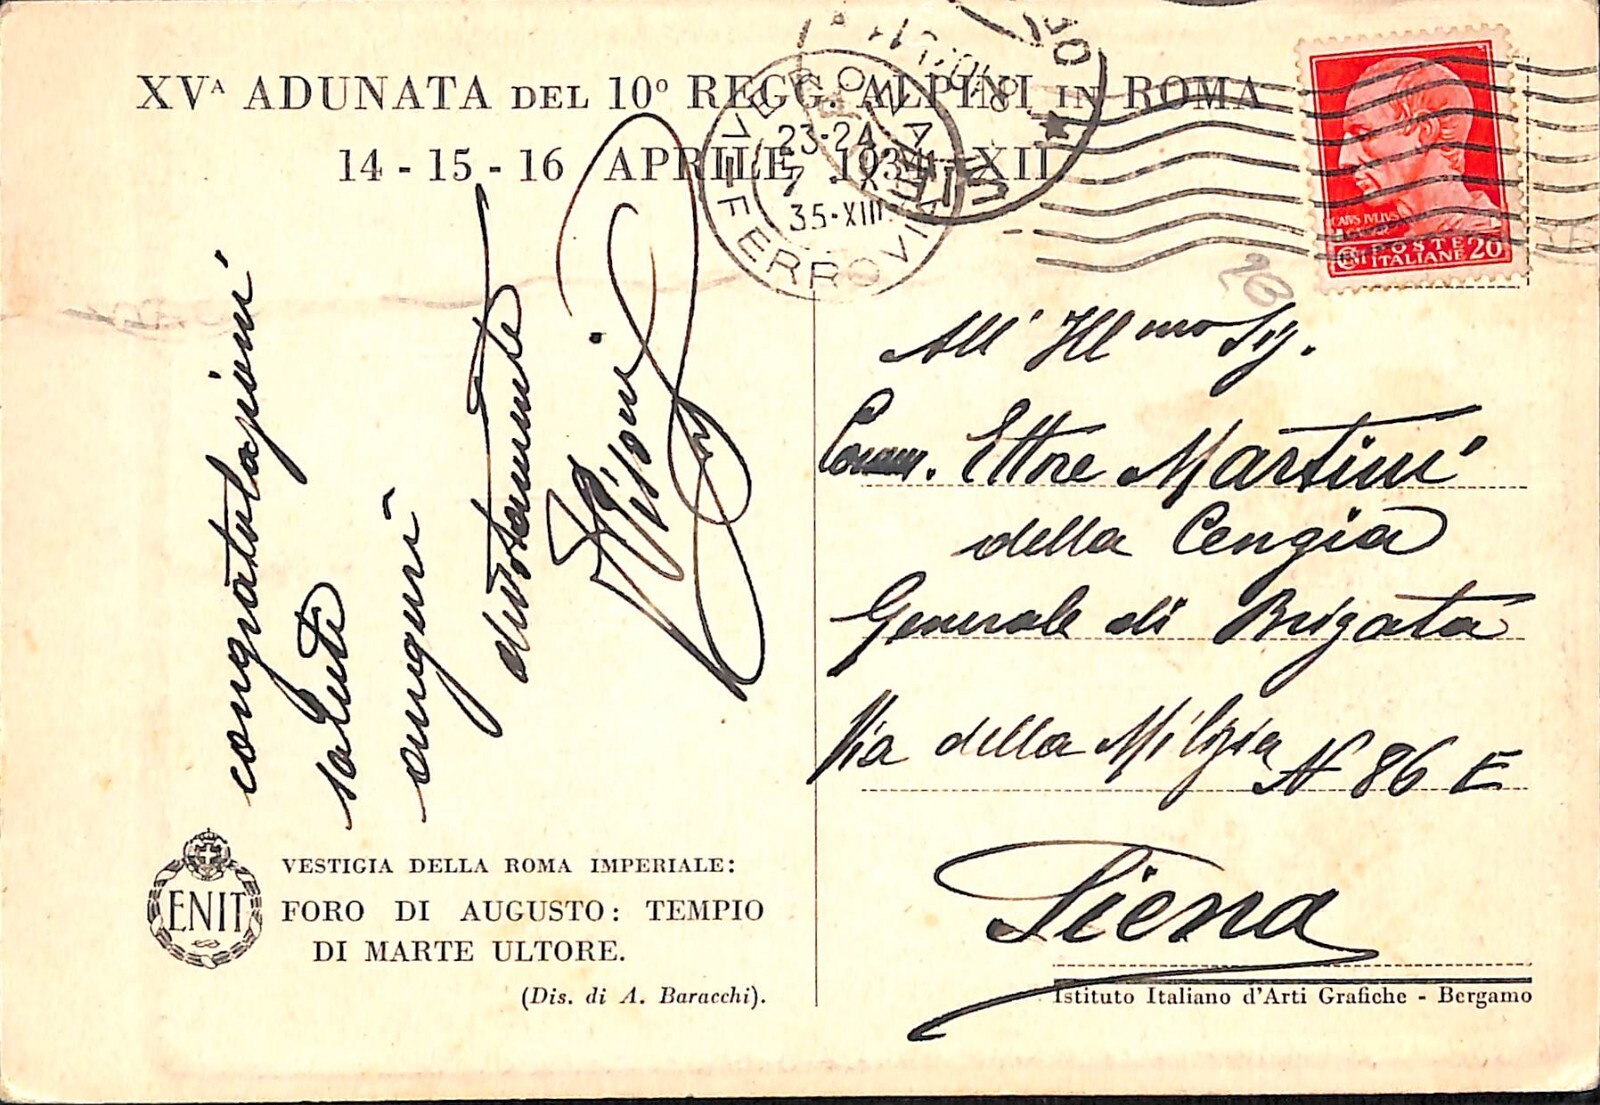 XVᴬ ADUNATA DEL 10º REGG. ALPINI IN ROMA
14 - 15 - 16 APRILE 1934 - XII
VERONA
23-24
7 . X
35-XIII
FERROVIA
CAIVS IVLIVS
CENT POSTE
ITALIANE 20
20
congratulazioni
saluti
auguri
devotamente
All' Ill mo Sig.
Comm. Ettore Martini
della Cengia
Generale di Brigata
Via della Milizia N 86 E
Siena
ENIT
VESTIGIA DELLA ROMA IMPERIALE:
FORO DI AUGUSTO: TEMPIO
DI MARTE ULTORE.
(Dis. di A. Baracchi).
Istituto Italiano d'Arti Grafiche - Bergamo